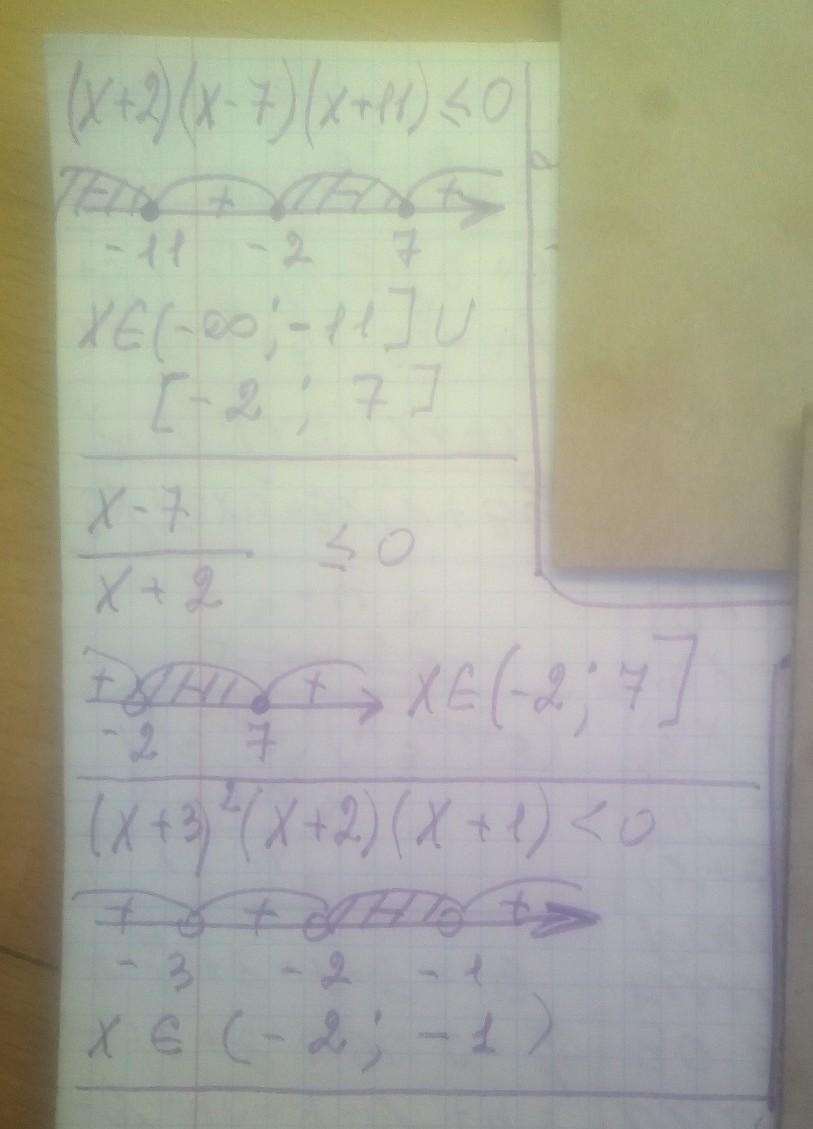 (x+2)(x-7)(x+11) ≤ 0
- + - +
-11 -2 7
x∈(-∞; -11] ∪
[-2 ; 7]
x-7
x+2 ≤ 0
+ - +
-2 7 x∈(-2; 7]
(x+3)²(x+2)(x+1) < 0
+ + - +
-3 -2 -1
x∈(-2; -1)